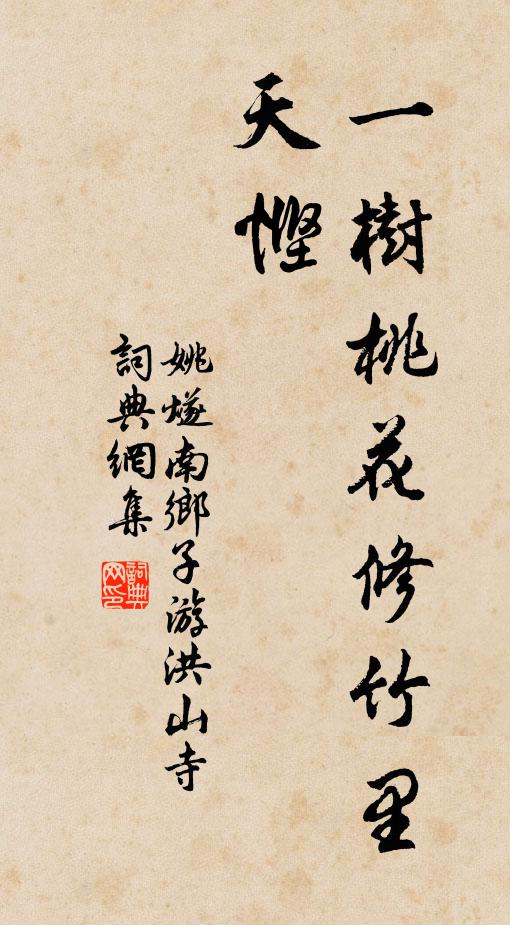 一樹桃花修竹里
天慳
姚燧南鄉子游洪山寺
詞典網集
詞典网印